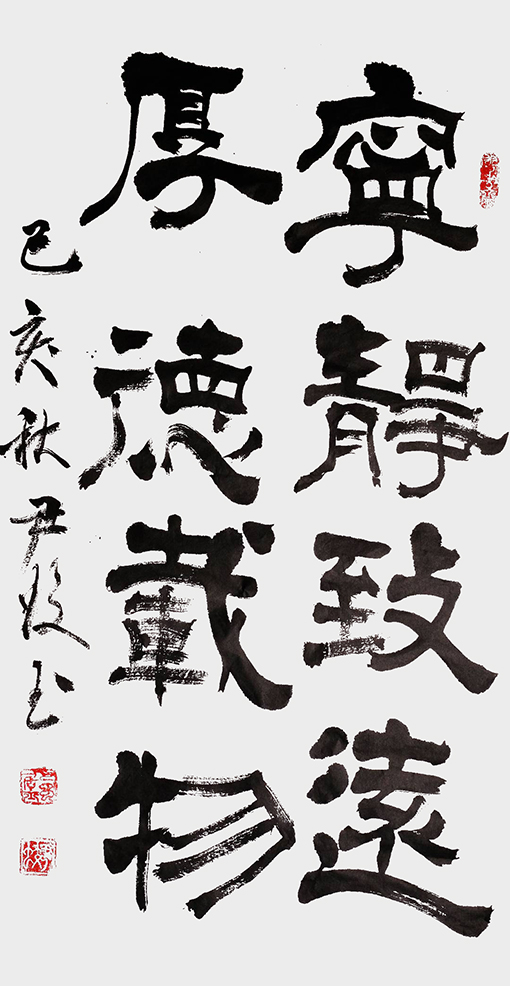 寧靜致遠
厚德載物
己亥秋尹玉